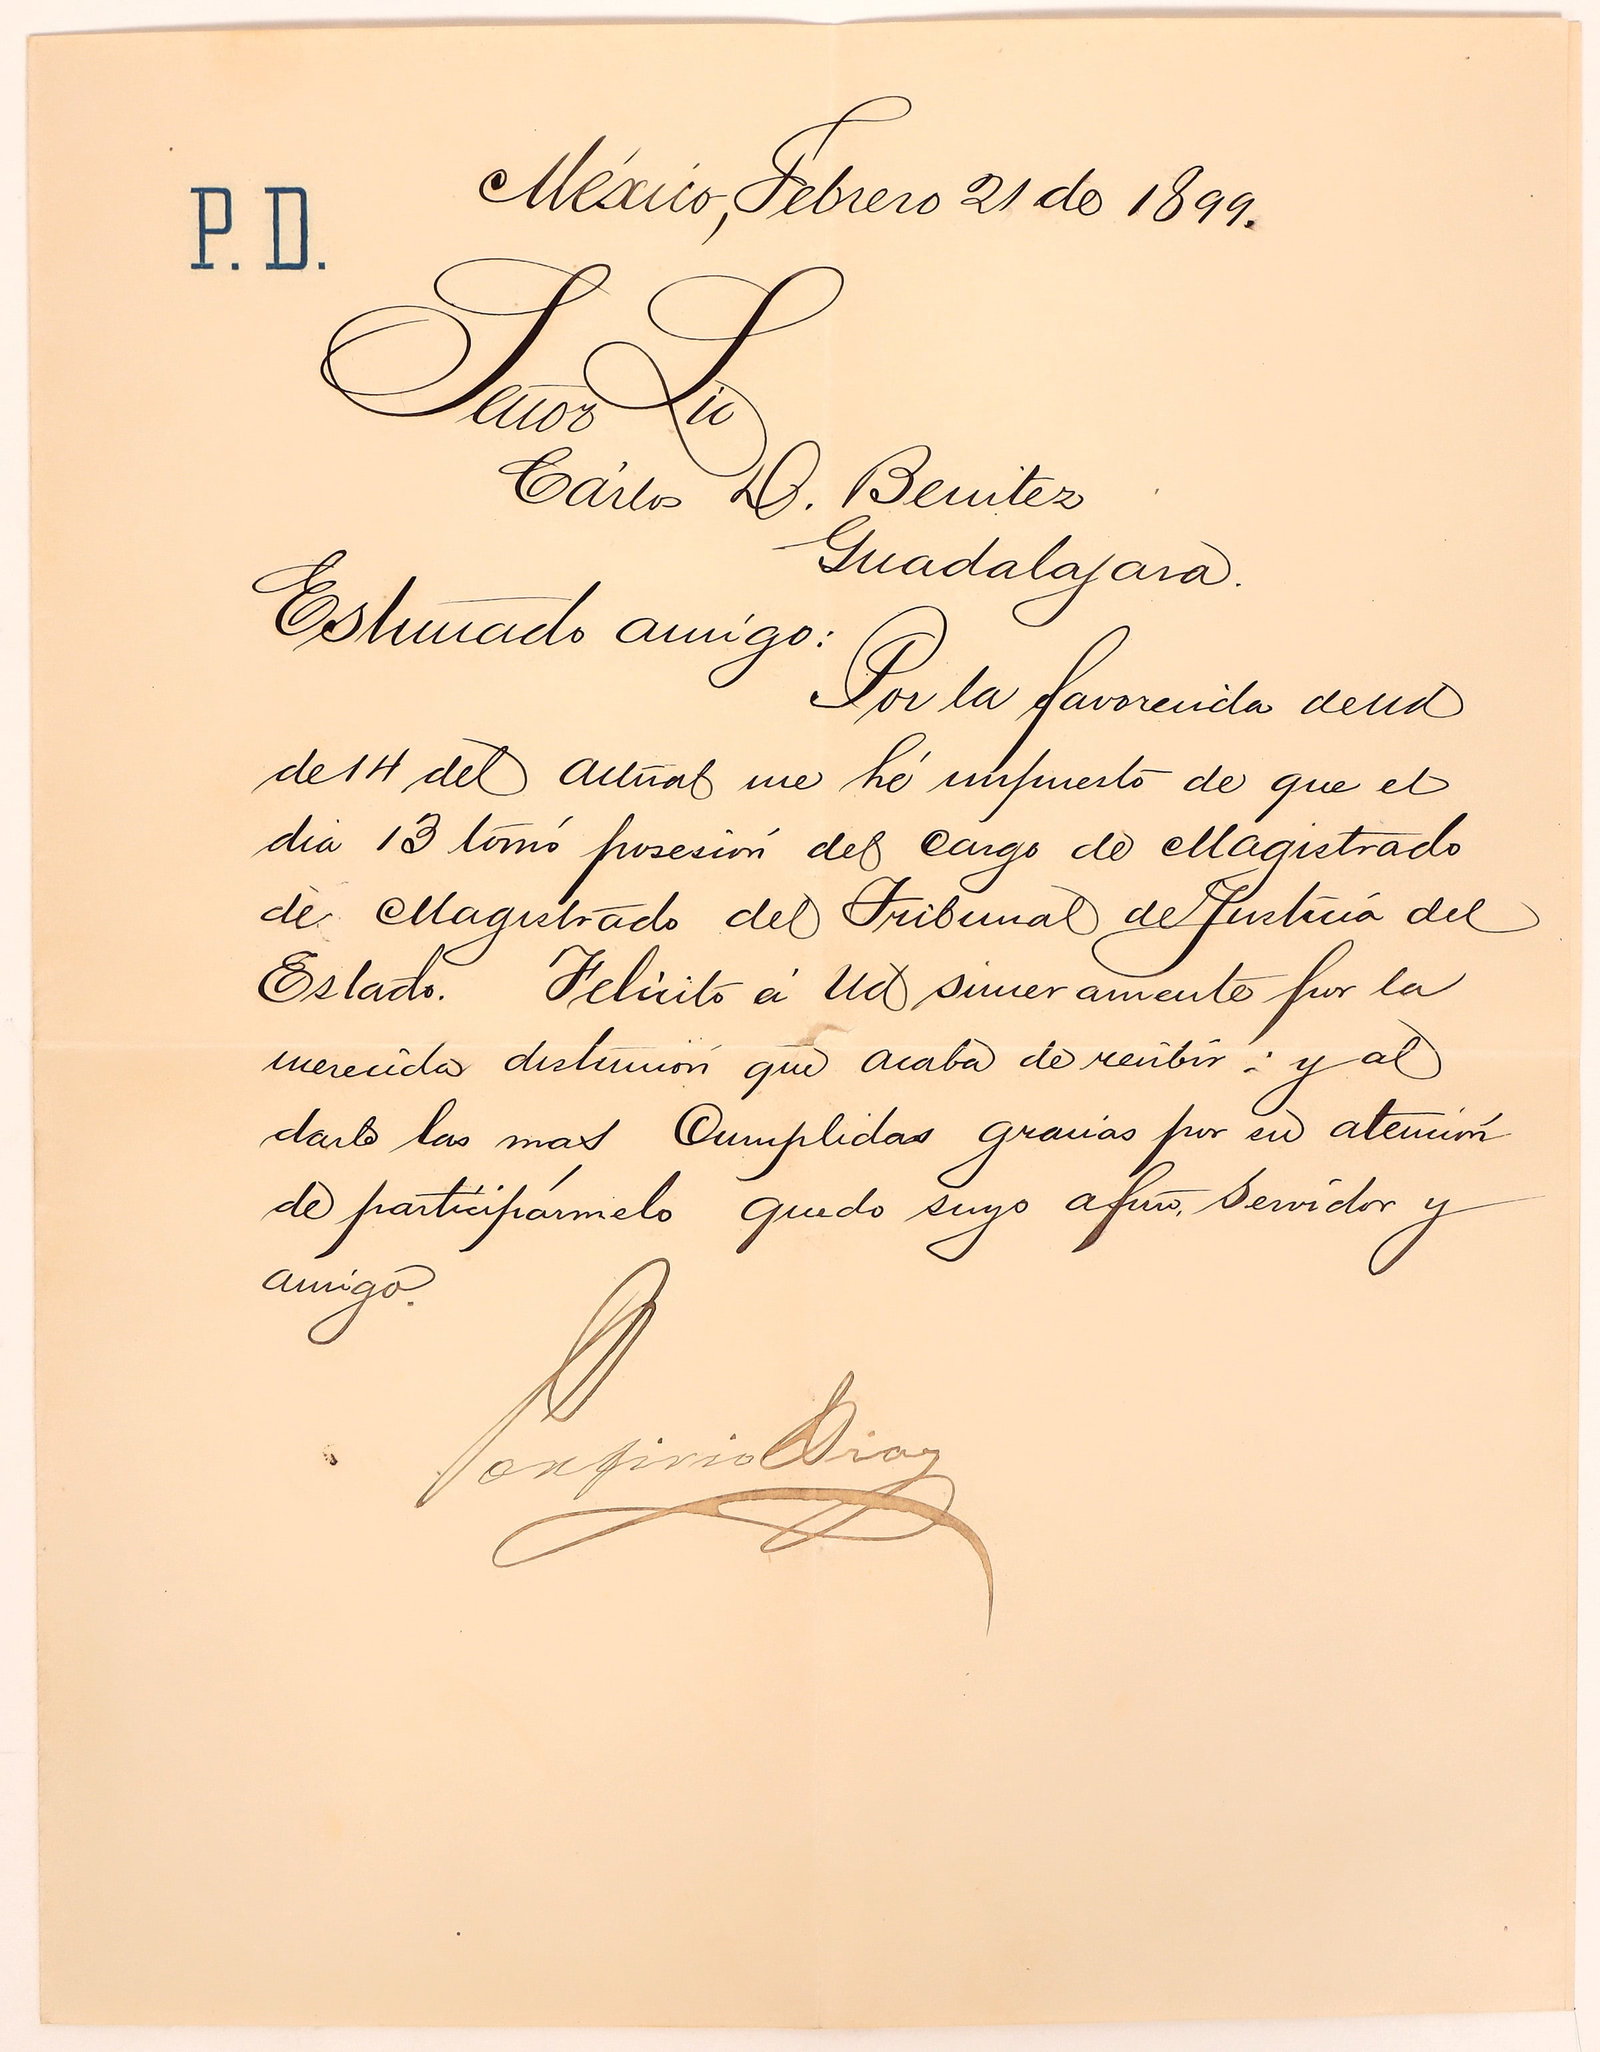 P. D.
México, Febrero 21 de 1899.
Señor Lic
Cárlos D. Benitez
Guadalajara.
Estimado amigo:
Por la favorecida de Ud
de 14 del actual me hé impuesto de que el
dia 13 tomó posesión del cargo de Magistrado
de Magistrado del Tribunal de Justicia del
Estado. Felicito á Ud sinceramente por la
merecida distinción que acaba de recibir; y al
darle las mas cumplidas gracias por su atención
de participármelo quedo suyo afmo. servidor y
amigo.
Porfirio Diaz